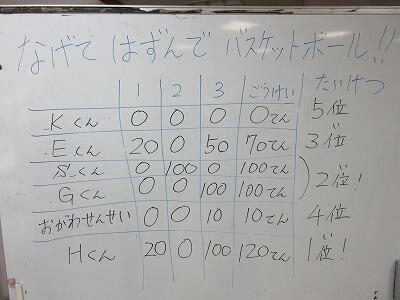 なげて はずんで バスケットボール!!
1 2 3 ごうけい たいけつ
Kくん 0 0 0 0てん 5位
Eくん 20 0 50 70てん 3位
Sくん 0 100 0 100てん
Gくん 0 0 100 100てん 2位!
おがわせんせい 0 0 10 10てん 4位
Hくん 20 0 100 120てん 1位!